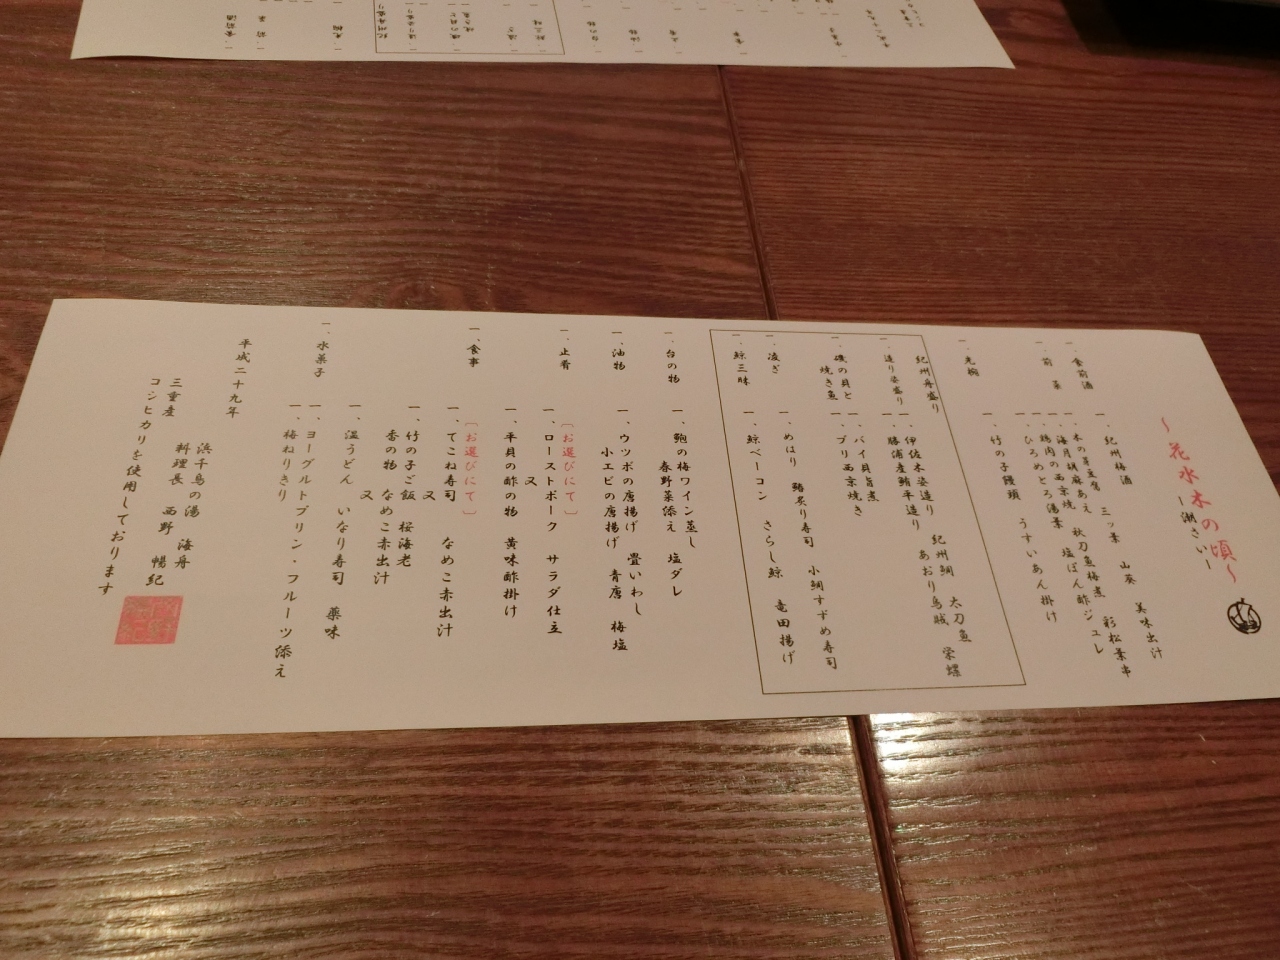 ～花水木の頃～
―潮さい―
一、食前酒
一、紀州梅酒
三ッ葉 山葵 美味出汁
一、前菜
一、木の芽豆腐 秋刀魚梅煮 彩松葉串
一、海月胡麻あえ 塩ぽん酢ジュレ
一、鶏肉の西京焼
一、ひろめとろ湯葉
一、先椀
一、竹の子饅頭 うすいあん掛け
紀州舟盛り
一、造り姿盛り
一、伊佐木姿造り 紀州鯛 太刀魚 栄螺
一、勝浦産鮪平造り あおり烏賊
一、磯の貝と焼き魚
一、バイ貝旨煮
一、ブリ西京焼き
一、凌ぎ
一、めはり 鮪炙り寿司 小鯛すずめ寿司
一、鯨三昧
一、鯨ベーコン さらし鯨 竜田揚げ
一、台の物
一、鮑の梅ワイン蒸し
春野菜添え 塩ダレ
一、油物
一、ウツボの唐揚げ 畳いわし
小エビの唐揚げ 青唐 梅塩
一、止肴
〔お選びにて〕
一、ローストポーク サラダ仕立
又
一、平貝の酢の物 黄味酢掛け
一、食事
〔お選びにて〕
一、てこね寿司 なめこ赤出汁
又
一、竹の子ご飯 桜海老
香の物 なめこ赤出汁
又
一、温うどん いなり寿司 薬味
一、水菓子
一、ヨーグルトプリン・フルーツ添え
一、梅ねりきり
平成二十九年
浜千鳥の湯 海舟
料理長 西野 暢紀
三重産
コシヒカリを使用しております